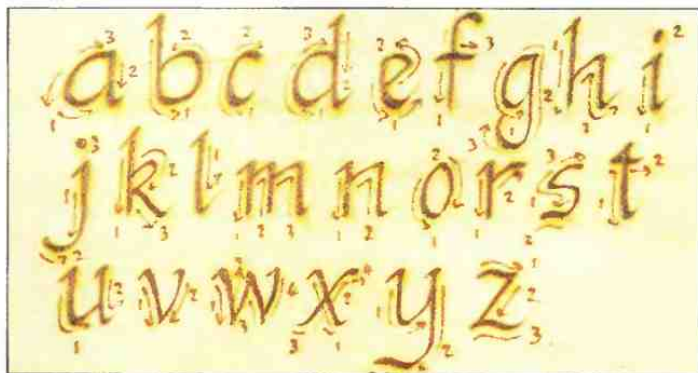 a b c d e f g h i
j k l m n o r s t
u v w x y z